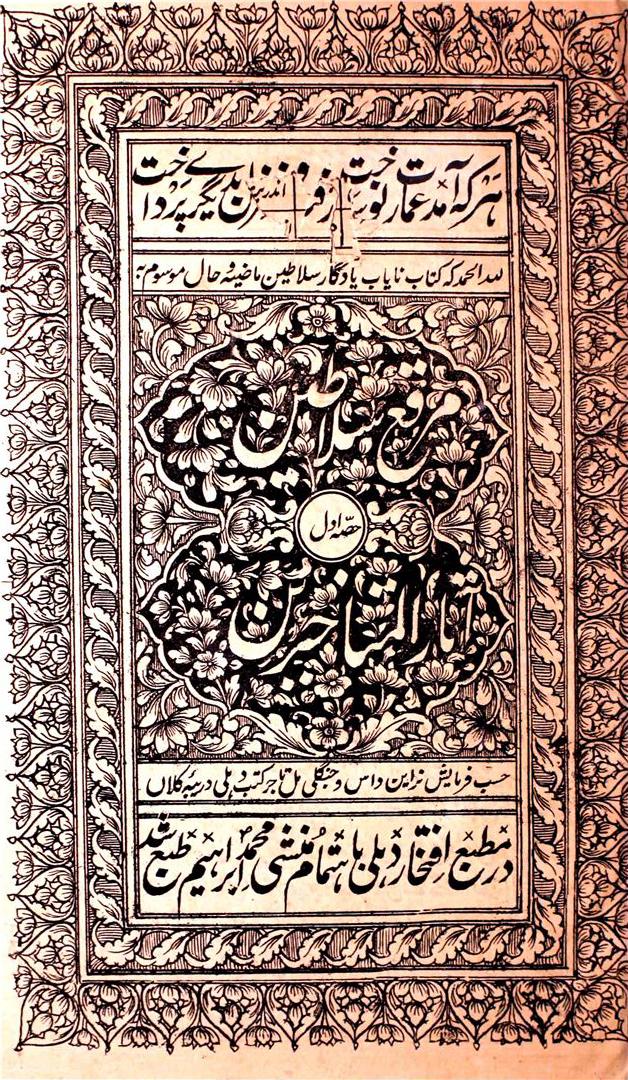 ہر کہ آمد عمارت نو ساخت رفت و منزل بدیگرے پرداخت
للہ الحمد کہ کتاب نایاب یادگار سلاطین ماضیہ و حال موسوم بہ
مرقع سلاطین
حصہ اول
آثار المتاخرین
حسب فرمایش نراین داس و جنگلی مل تاجر کتب دہلی دریبہ کلاں
در مطبع افتخار دہلی باہتمام منشی محمد ابراہیم طبع شد